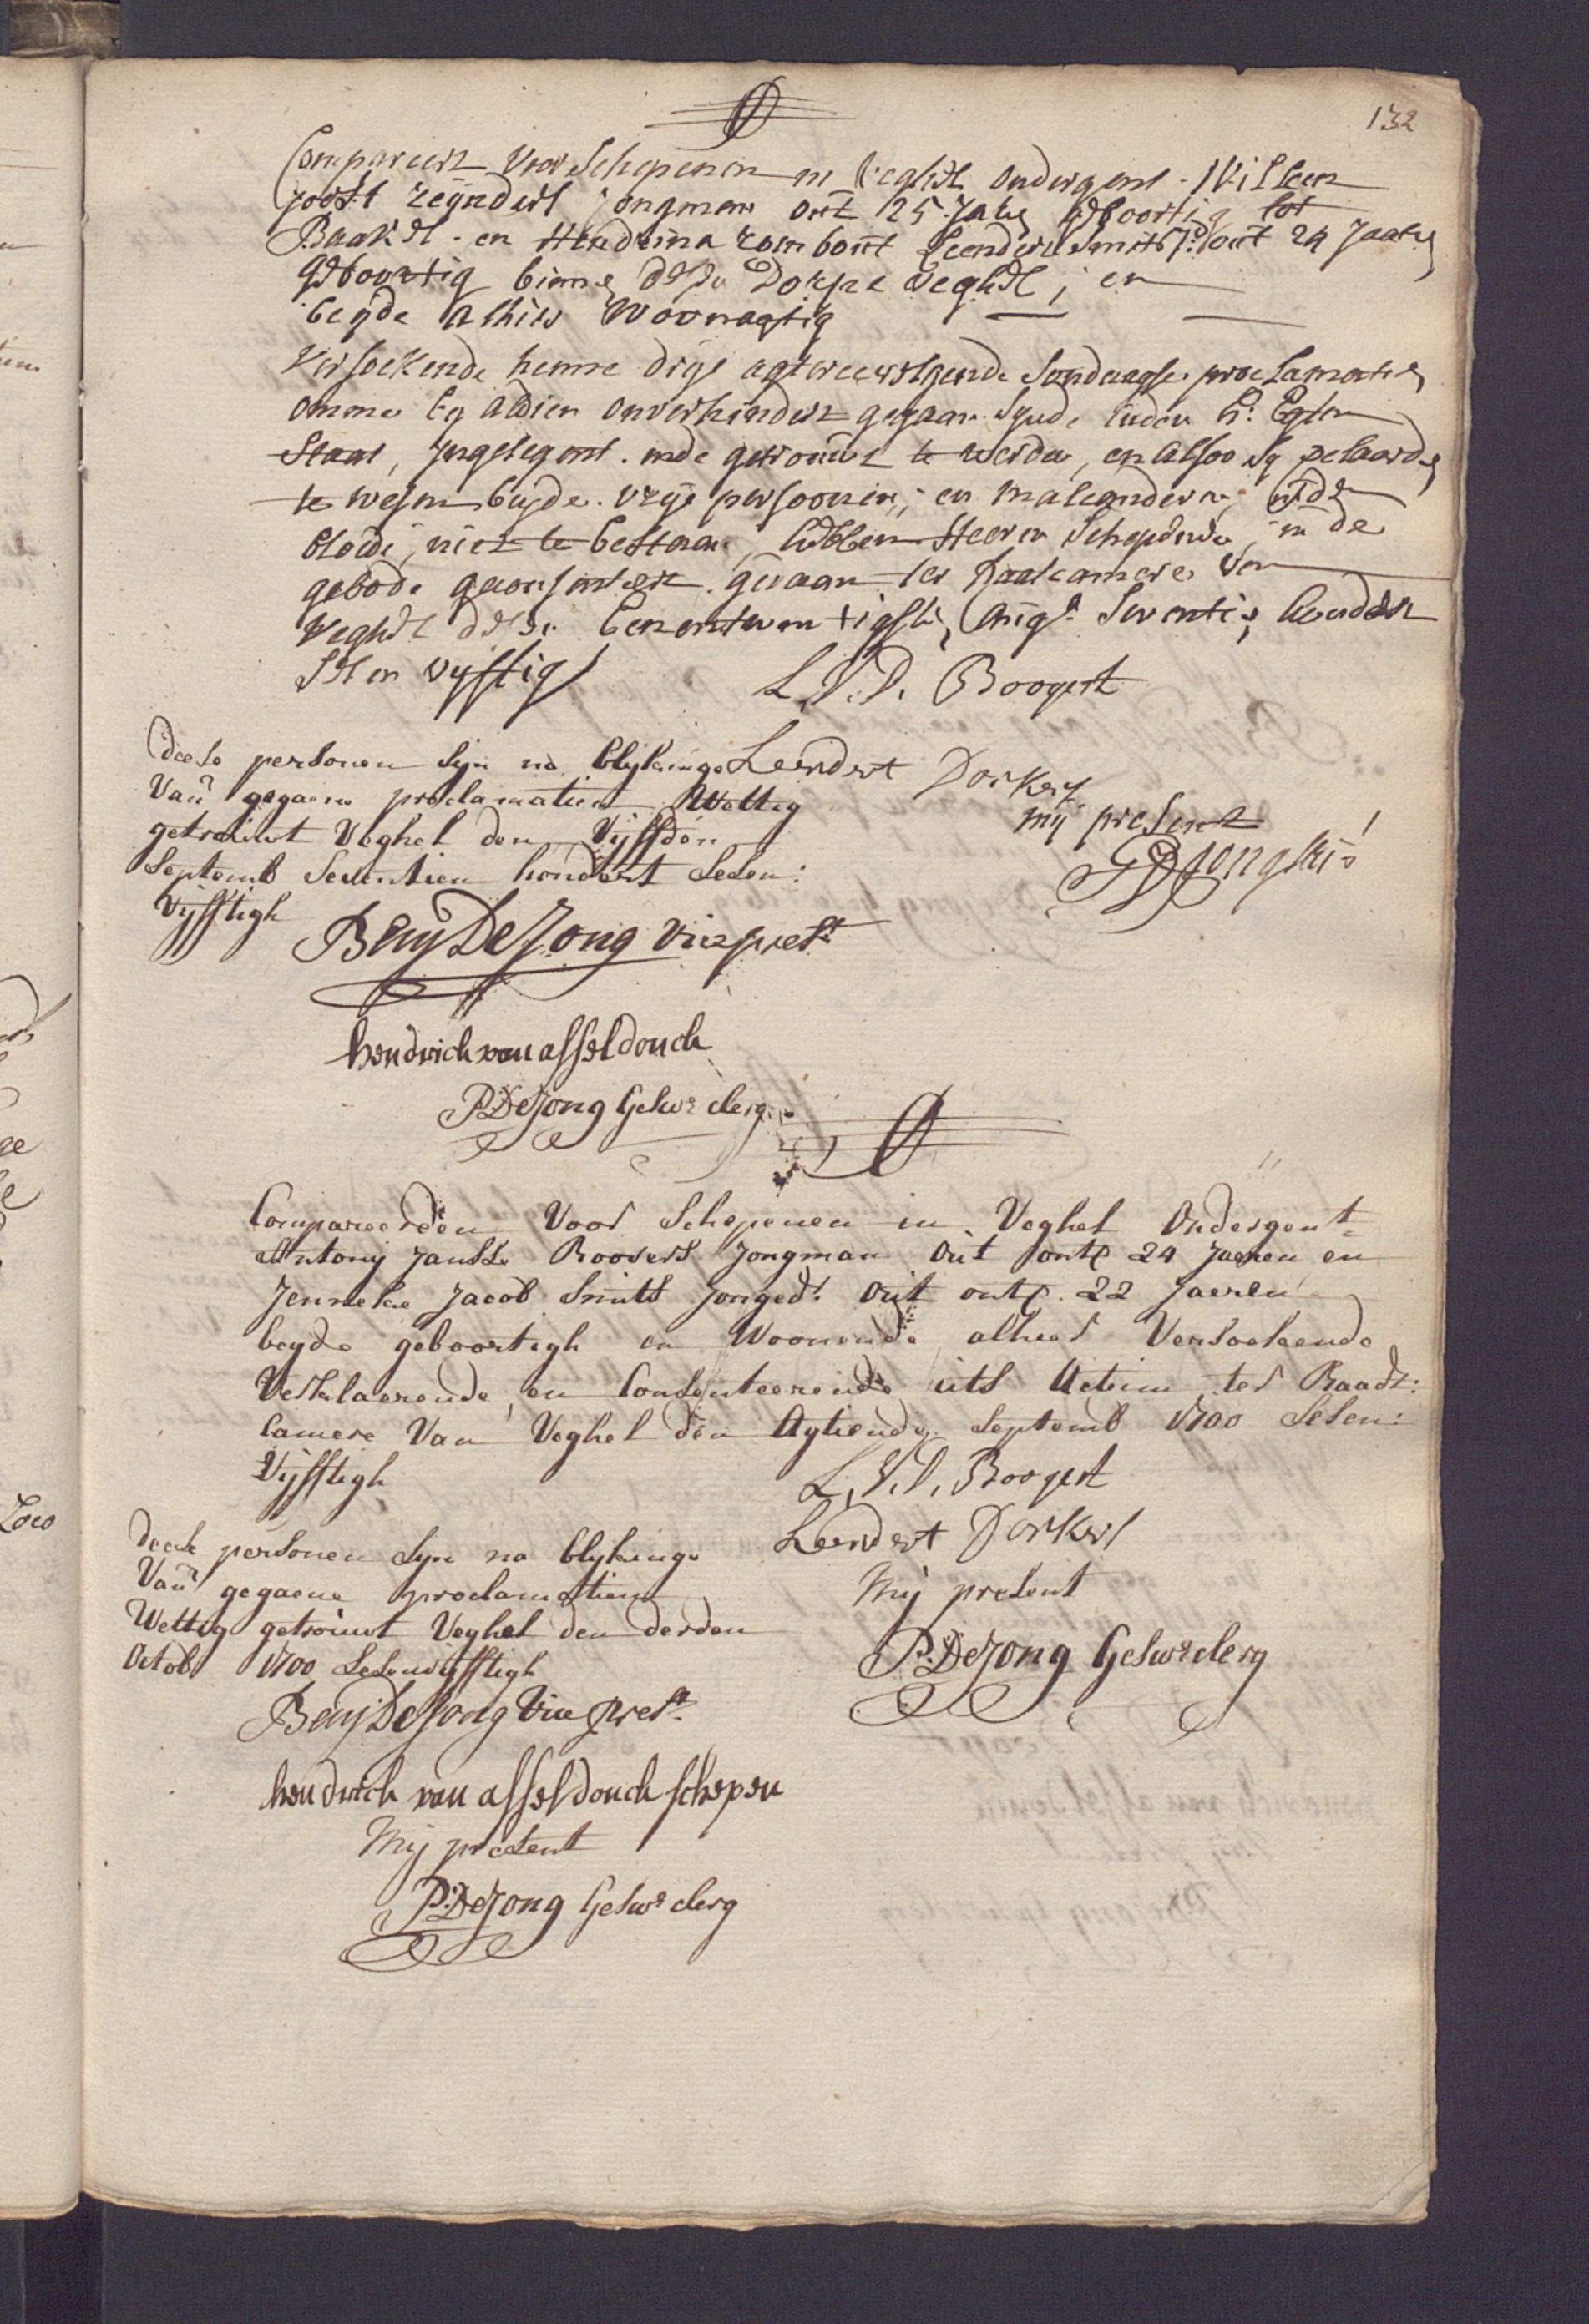 132
Compareert Voor Schepenen in Veghel Ondergent. Willem
Joost reijnders jongman out 25 Jare geboortig tot
Baakel. en Hendrina rombout Leenders Smits J:d out 24 Jaare
geboortig binne dese Dorpe Veghel; en
beyde alhier woonagtig
Versoekende henne drije agtereevolgende Sondaagse proclamatie
omme by aldien onverhindert gegaan synde in den H: Egten
Staat, Ingelegent. ende getrouwt te werden, en alsoo sy
te wesen beyde. vrije persoonen; en malcanderen, in den
bloede, niet te bestaan, hebben Heeren Schepenen in de
gebode geconsenteert. gedaan ter Raatcamere Van
Veghel dese eenentwentigste Aug. Seventien hondert
Ses en vyftig
L. V. D. Boogert
deese personen syn na blykinge Leendert Dorkers
Van gegaene proclamatien Wettig
mij present
getrouwt Veghel den Vijffden
Septemb Seventien hondert Sesen:
Vijfftigh
Benj De Jong Vicepresdt
hendrick van asseldonck
P. De Jong Geswr clerq
Compareerden Voor Schepenen in Veghel Ondergent
Antony Jansse Roovers Jongman Out ontr 24 Jaeren en
Jenneke Jacob Smits Jonged: Out ontr. 22 Jaeren
beyde geboortigh en Woonende alhier Versoekende
Verklaerende, en Consenteerende uts Actum ter Raadt:
Camere Van Veghel den Agtiende Septemb 1700 Sesen:
Vijfftigh
L. V. D. Boogert
Leendert Dorkers
deese personen Syn na blykinge
Van gegaene proclamatien
Mij present
Wettig getrouwt Veghel den derden
Octob 1700 Sesenvijfftigh
P. De Jong Geswr clerq
Benj De Jong Vice presdt
hendrick van asseldonck schepen
Mij present
P. De Jong Geswr clerq